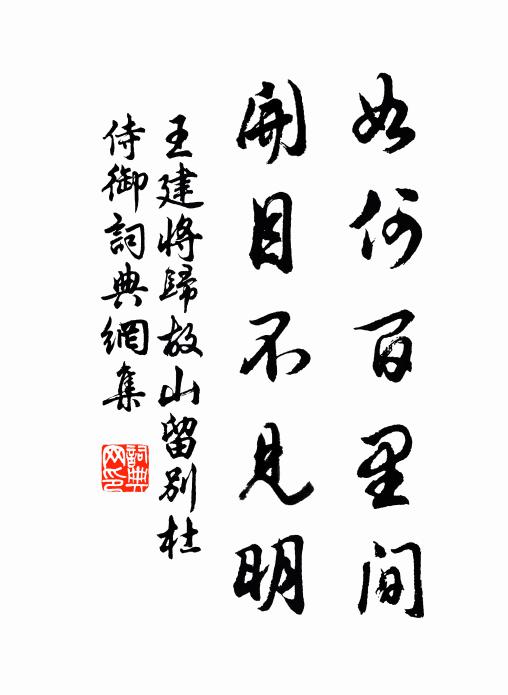 如何百里間
開目不見明
王建將歸故山留別杜
侍御詞典網集
詞典
网印